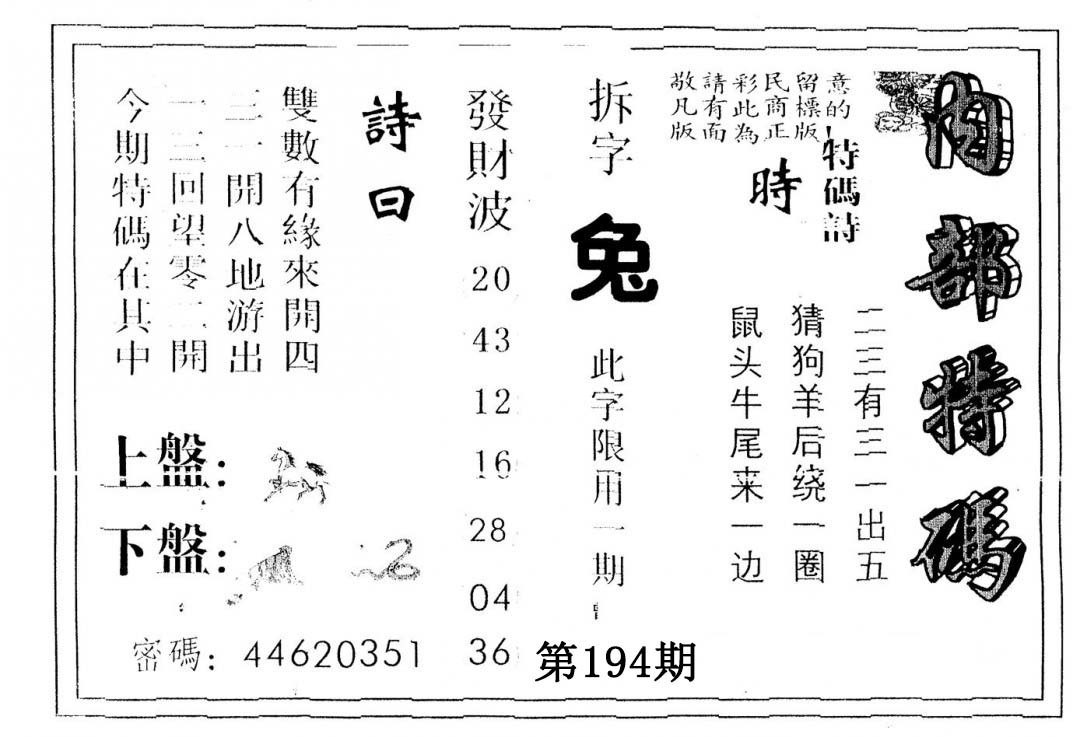 内部特碼
敬請彩民留意
凡有此商標的
版面為正版!
特碼詩
時
二三有三一出五
猜狗羊后绕一圈
鼠头牛尾来一边
拆字
兔
此字限用一期
發財波
20
43
12
16
28
04
36
詩曰
雙數有緣來開四
三一開八地游出
一三回望零二開
今期特碼在其中
上盤:
下盤:
密碼: 44620351
第194期